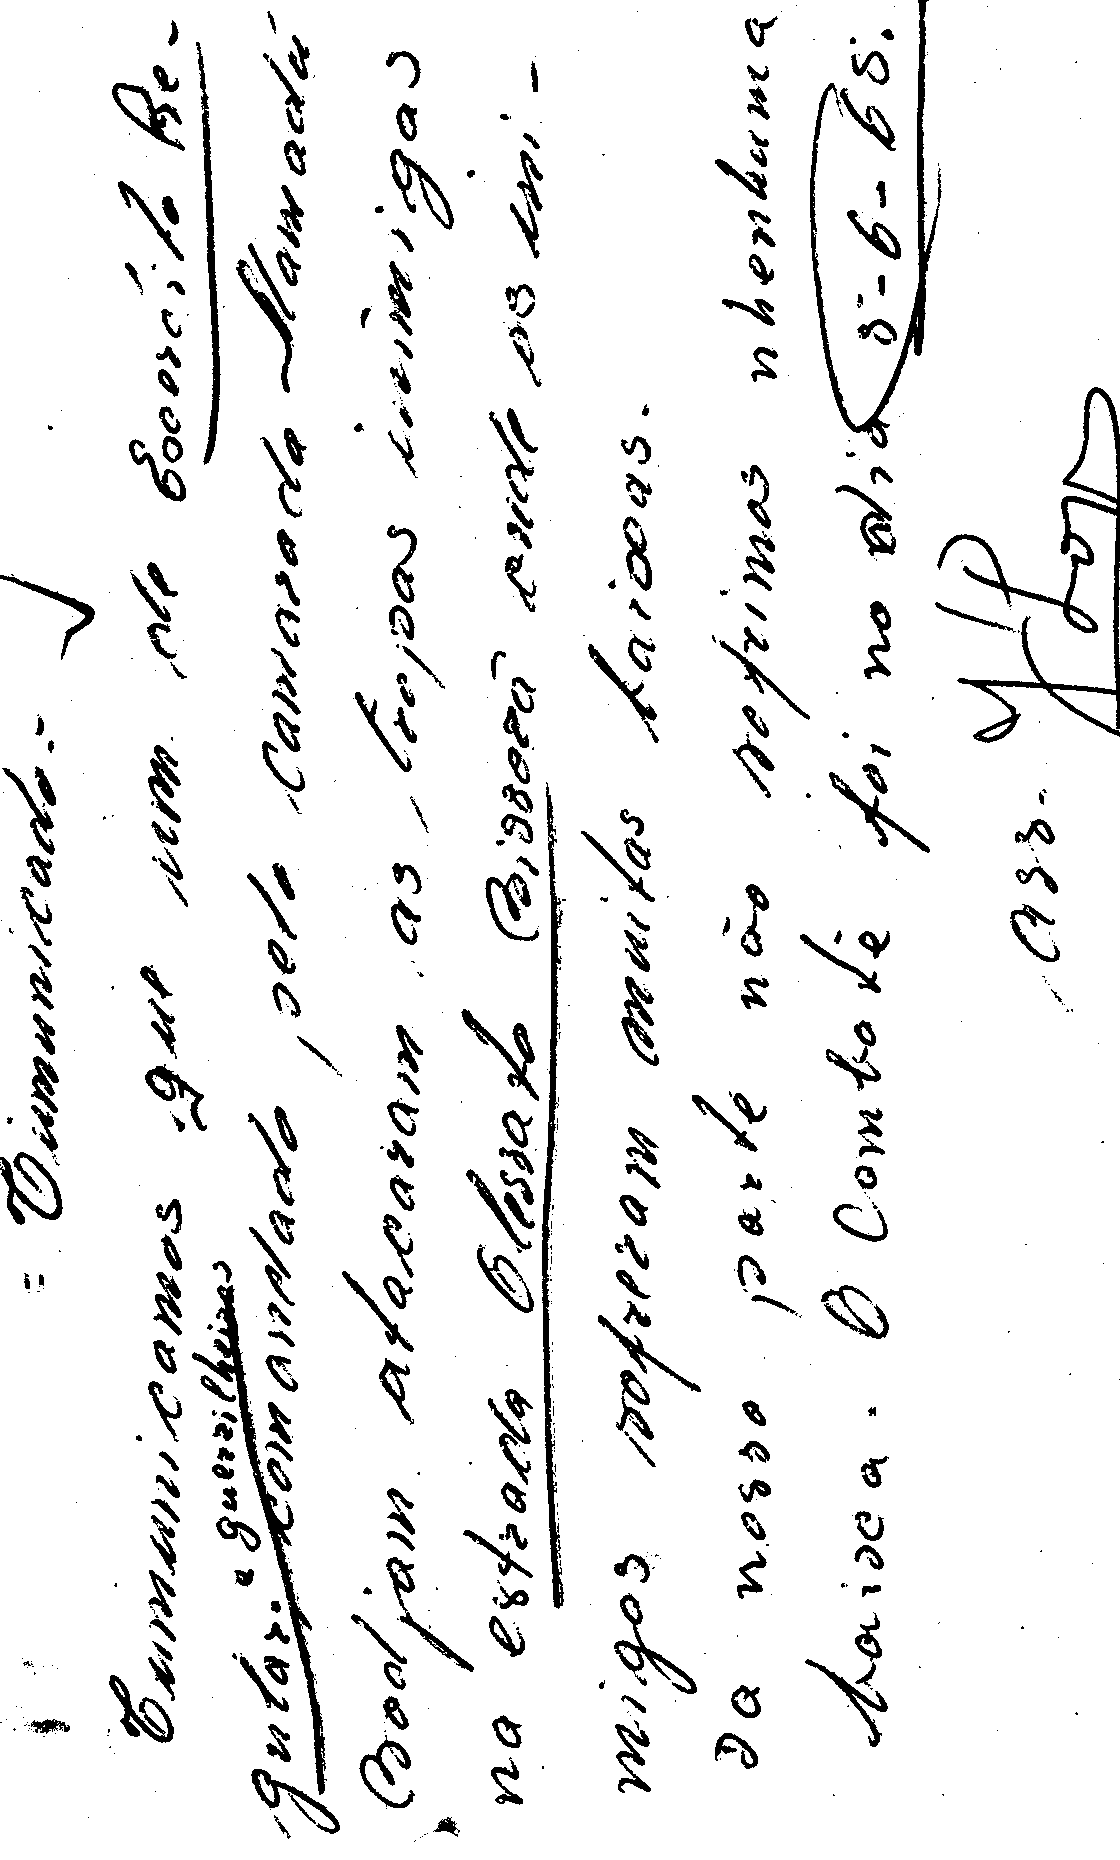 = Cumunicado.=
Cumunicamos que um de Exército Re-
gular. e guerrilheiros
comandado, pelo camarada Mamadú
Bodjam atacaram as, tropas inimigas
na estrada Olossato Bissorã onde os ini-
migos sofreram muitas baixas.
Da nosso parte não sofrimos nhenhuma
baixa. O Combate foi no dia 5-6-68.
ass.